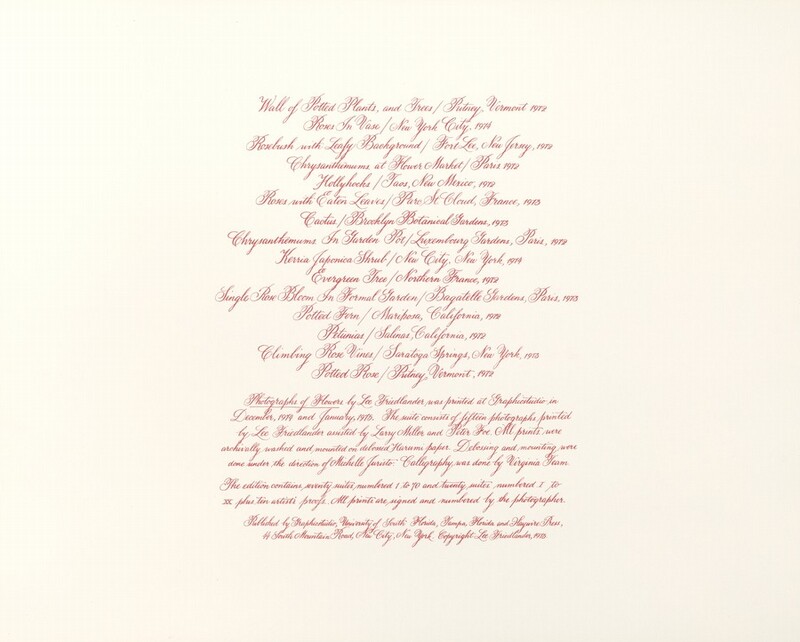 Wall of Potted Plants, and Trees / Putney, Vermont 1972
Roses In Vase / New York City, 1974
Rosebush with Leafy Background / Fort Lee, New Jersey, 1972
Chrysanthimums at Flower Market / Paris 1972
Hollyhocks / Taos, New Mexico, 1972
Roses with Eaten Leaves / Parc St. Cloud, France, 1973
Cactus / Brooklyn Botanical Gardens, 1973
Chrysanthemums In Garden Pot / Luxembourg Gardens, Paris, 1972
Kerria Japonica Shrub / New City, New York, 1974
Evergreen Tree / Northern France, 1972
Single Rose Bloom In Formal Garden / Bagatelle Gardens, Paris, 1973
Potted Fern / Mariposa, California, 1972
Petunias / Salinas, California, 1972
Climbing Rose Vines / Saratoga Springs, New York, 1973
Potted Rose / Putney, Vermont, 1972
Photographs of Flowers by Lee Friedlander was printed at Graphicstudio in
December, 1974 and January, 1975. The suite consists of fifteen photographs printed
by Lee Friedlander assisted by Larry Miller and Peter Foe. All prints were
archivally washed and mounted on debossed Harumi paper. Debossing and mounting were
done under the direction of Michelle Juristo. Calligraphy was done by Virginia Team.
The edition contains seventy suites numbered 1 to 70 and twenty suites numbered I to
XX plus ten artist's proofs. All prints are signed and numbered by the photographer.
Published by Graphicstudio, University of South Florida, Tampa, Florida and Haywire Press,
44 South Mountain Road, New City, New York. Copyright Lee Friedlander, 1975